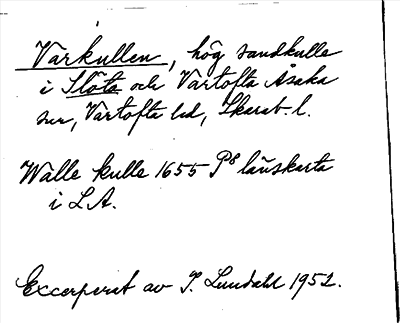 Varkullen, hög sandkulle
i Slöta och Vartofta Åsaka
snr, Vartofta hd, Skarab. l.
Walle kulle 1655 P8 länskarta
i L A.
Excerperat av I. Lundahl 1952.